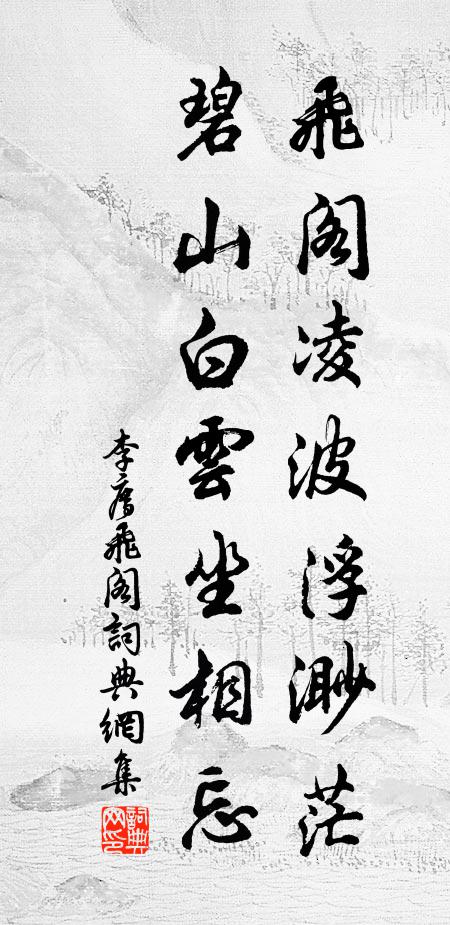 飛閣凌波浮渺茫
碧山白雲坐相忘
李廌飛閣詞典網集
詞典
网印